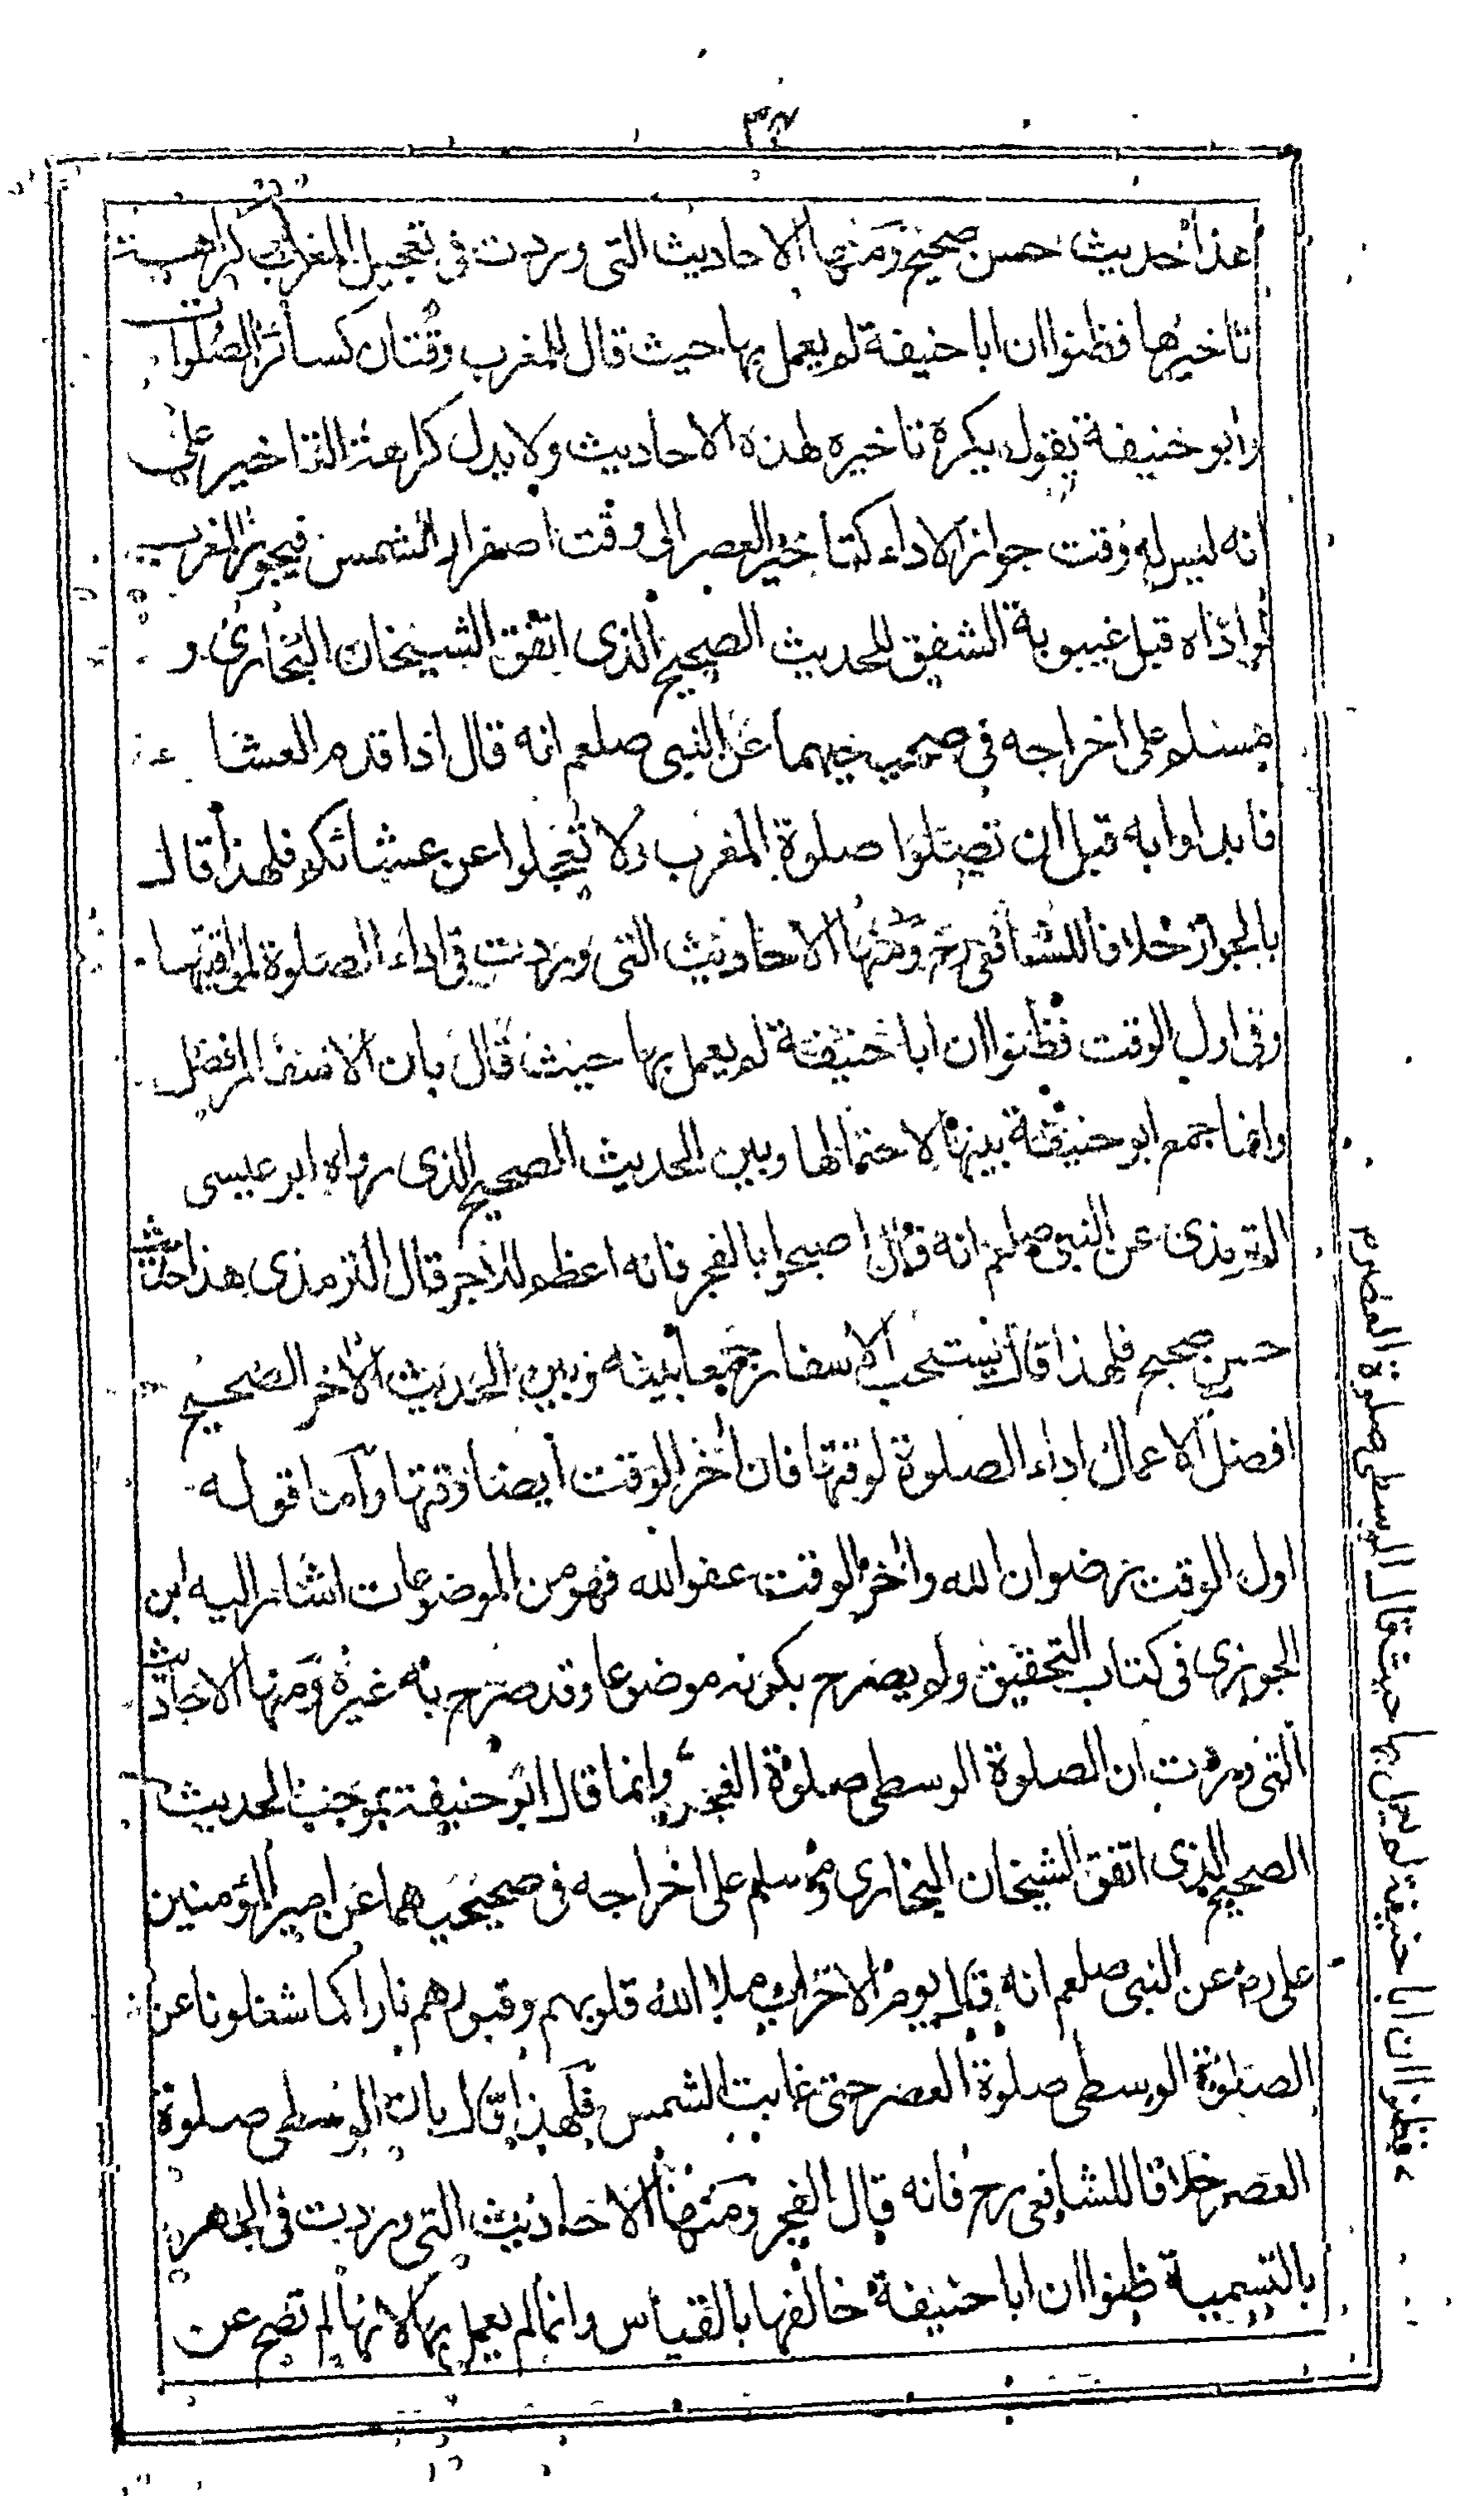 ٣٤
هذا حديث حسن صحيح ومنها الاحاديث التى وردت فى تعجيل المغرب كراهية
تاخيرها فظنوا ان ابا حنيفة لم يعمل بها حيث قال للمغرب وقتان كسائر الصلوات
وابو حنيفة يقول يكره تاخيره لهذه الاحاديث ولا يدل كراهة التاخير على
انه ليس له وقت جواز الاداء كتاخير العصر الى وقت اصفرار الشمس فيجوز المغرب
لو اداه قبل غيبوبة الشفق للحديث الصحيح الذى اتفق الشيخان البخارى و
مسلم على اخراجه فى صحيحيهما عن النبى صلعم انه قال اذا قدم العشاء
فابداوا به قبل ان تصلوا صلوة المغرب ولا تعجلوا عن عشائكم فلهذا قال
بالجواز خلافا للشافعى رح ومنها الاحاديث التى وردت فى اداء الصلوة لمواقيتها
وفى اول الوقت فظنوا ان ابا حنيفة لم يعمل بها حيث قال بان الاسفار افضل
وانما جمع ابو حنيفة بينها لاحتمالها وبين الحديث الصحيح الذى رواه ابو عيسى
الترمذى عن النبى صلعم انه قال اصبحوا بالفجر فانه اعظم للاجر قال الترمذى هذا حديث
حسن صحيح فلهذا قال يستحب الاسفار جمعا بينه وبين الحديث الاخر الصحيح
افضل الاعمال اداء الصلوة لوقتها فان اخر الوقت ايضا وقتها واما قوله
اول الوقت رضوان الله واخر الوقت عفو الله فهو من الموضوعات اشار اليه ابن
الجوزى فى كتاب التحقيق ولم يصرح بكونه موضوعا وقد صرح به غيره ومنها الاحاديث
التى وردت ان الصلوة الوسطى صلوة الفجر وانما قال ابو حنيفة بموجب الحديث
الصحيح الذى اتفق الشيخان البخارى ومسلم على اخراجه فى صحيحيهما عن امير المؤمنين
على رض عن النبى صلعم انه قال يوم الاحزاب ملا الله قلوبهم وقبورهم نارا كما شغلونا عن
الصلوة الوسطى صلوة العصر حتى غابت الشمس فلهذا قال بان الوسطى صلوة
العصر خلافا للشافعى رح فانه قال الفجر ومنها الاحاديث التى وردت فى الجهر
بالتسمية ظنوا ان ابا حنيفة خالفها بالقياس وانما لم يعمل بها لانها لم تصح عن
فظنوا ان ابا حنيفة لم يعمل بها حيث قال الوسطى صلوة العصر